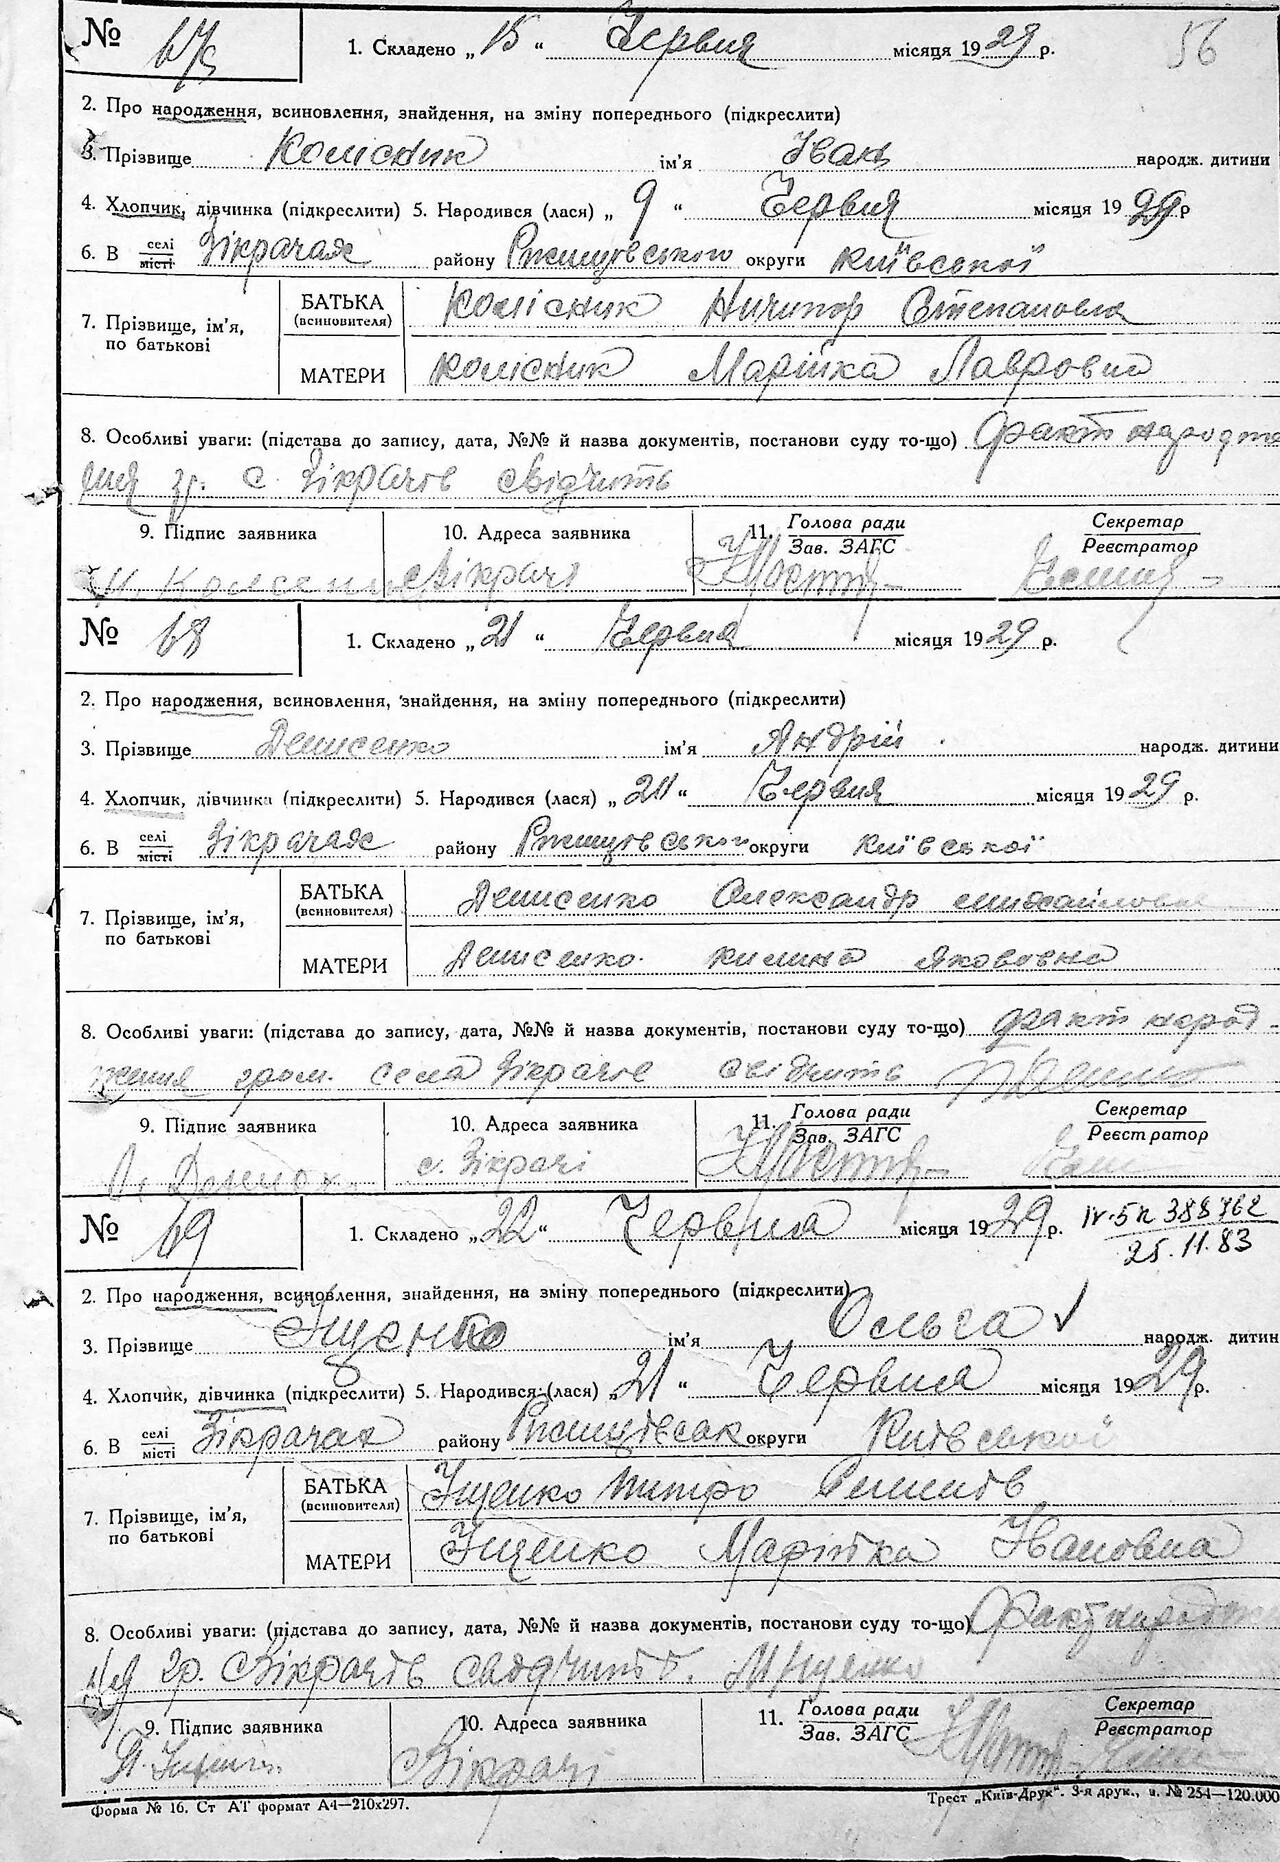 № 67 1. Складено „15“ Червня місяця 1929 р. 56
2. Про народження, всиновлення, знайдення, на зміну попереднього (підкреслити)
3. Прізвище Колісник ім'я Іван народж. дитини
4. Хлопчик, дівчинка (підкреслити) 5. Народився (лася) „9“ Червня місяця 1929 р
6. В селі місті Зікрачах району Ржищівського округи Київської
7. Прізвище, ім'я, по батькові БАТЬКА (всиновителя) Колісник Ничипор Степанович
МАТЕРИ Колісник Марійка Лавровна
8. Особливі уваги: (підстава до запису, дата, №№ й назва документів, постанови суду то-що) Факт народже
ння гр. с Зікрачів свідчить
9. Підпис заявника 10. Адреса заявника 11. Голова ради Секретар
Зав. ЗАГС Реєстратор
с Зікрачі
№ 68 1. Складено „21“ Червня місяця 1929 р.
2. Про народження, всиновлення, знайдення, на зміну попереднього (підкреслити)
3. Прізвище Денисенко ім'я Андрій народж. дитини
4. Хлопчик, дівчинка (підкреслити) 5. Народився (лася) „21“ Червня місяця 1929 р.
6. В селі місті Зікрачах району Ржищівського округи Київської
7. Прізвище, ім'я, по батькові БАТЬКА (всиновителя) Денисенко Олександр
МАТЕРИ Денисенко Килина Якововна
8. Особливі уваги: (підстава до запису, дата, №№ й назва документів, постанови суду то-що) факт народ-
ження гром. села Зікрачів свідчить
9. Підпис заявника 10. Адреса заявника 11. Голова ради Секретар
Зав. ЗАГС Реєстратор
с. Зікрачі
№ 69 1. Складено „22“ Червня місяця 1929 р. IV-БК 388762
25.11.83
2. Про народження, всиновлення, знайдення, на зміну попереднього (підкреслити)
3. Прізвище Іщенко ім'я Ольга ✓ народж. дитин
4. Хлопчик, дівчинка (підкреслити) 5. Народився (лася) „21“ Червня місяця 1929 р.
6. В селі місті Зікрачах району Ржищівськ округи Київської
7. Прізвище, ім'я, по батькові БАТЬКА (всиновителя) Іщенко
МАТЕРИ Іщенко Марійка Івановна
8. Особливі уваги: (підстава до запису, дата, №№ й назва документів, постанови суду то-що) Факт народже
ня гр. Зікрачів свідчить.
9. Підпис заявника 10. Адреса заявника 11. Голова ради Секретар
Зав. ЗАГС Реєстратор
Зікрачі
Форма № 16. Ст АТ формат А4—210x297. Трест „Київ-Друк“. 3-я друк., з. № 254—120.000